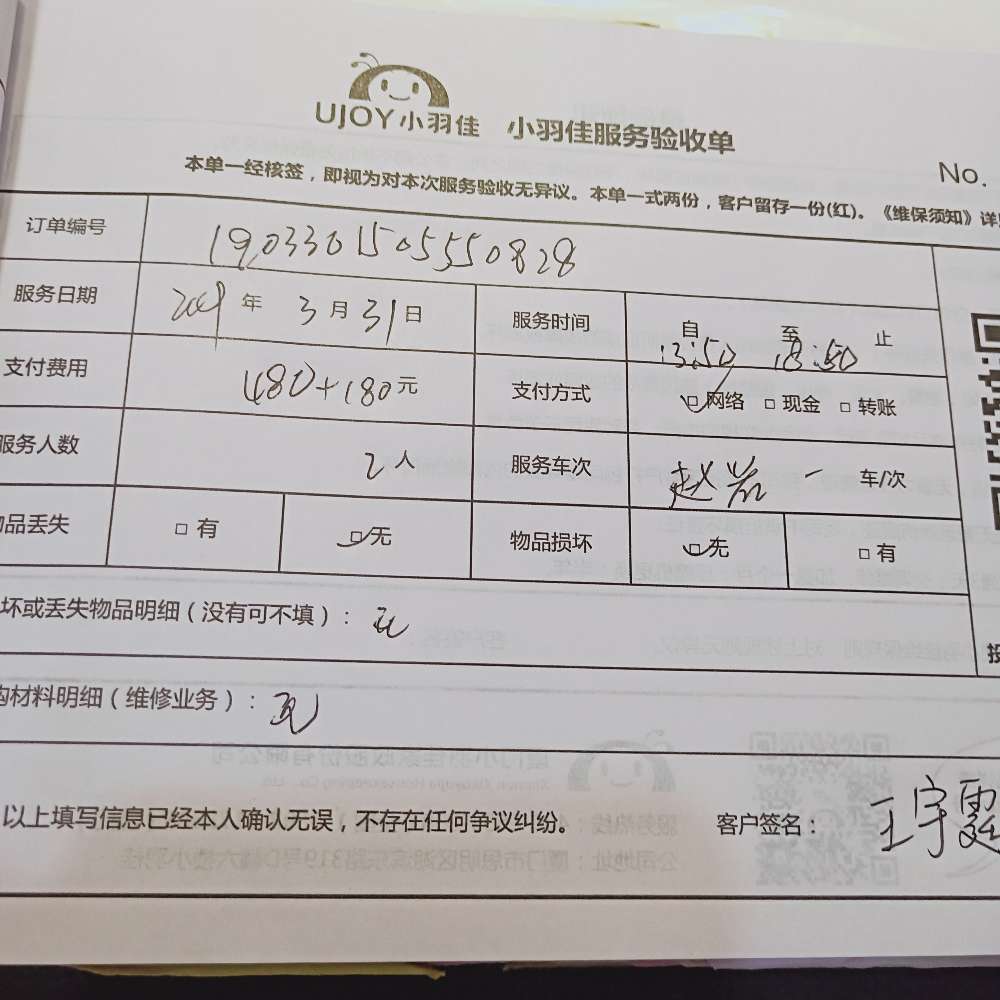 UJOY小羽佳 小羽佳服务验收单
No.
本单一经核签，即视为对本次服务验收无异议。本单一式两份，客户留存一份(红)。《维保须知》详
订单编号 1903301505550828
服务日期 2019年3月31日 服务时间 自 至 止
13:50 18:50
支付费用 480+180元 支付方式 □网络 □现金 □转账
服务人数 2人 服务车次 赵岩 一 车/次
品丢失 □有 □无 物品损坏 □无 □有
坏或丢失物品明细（没有可不填）：无
购材料明细（维修业务）：无
以上填写信息已经本人确认无误，不存在任何争议纠纷。 客户签名：王宇霆